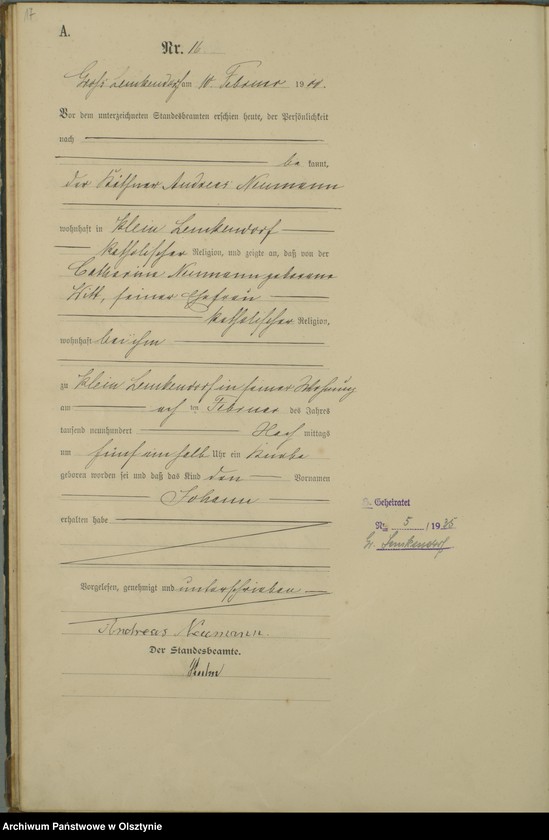 17
A.
Nr. 16
Groß Lemkendorf am 10. Februar 1900.
Vor dem unterzeichneten Standesbeamten erschien heute, der Persönlichkeit
nach
be kannt,
der Käthner Andreas Neumann
wohnhaft in Klein Lemkendorf
katholischer Religion, und zeigte an, daß von der
Catharina Neumann geborene
Witt, seiner Ehefrau
katholischer Religion,
wohnhaft bei ihm
zu Klein Lemkendorf in seiner Wohnung
am ten Februar des Jahres
tausend neunhundert Nach mittags
um fünf ein halb Uhr ein Knabe
geboren worden sei und daß das Kind den Vornamen
Johann
erhalten habe
Vorgelesen, genehmigt und unterschrieben
Andreas Neumann
Der Standesbeamte.
Geheiratet
No 5 / 1935
Gr. Lemkendorf
Archiwum Państwowe w Olsztynie